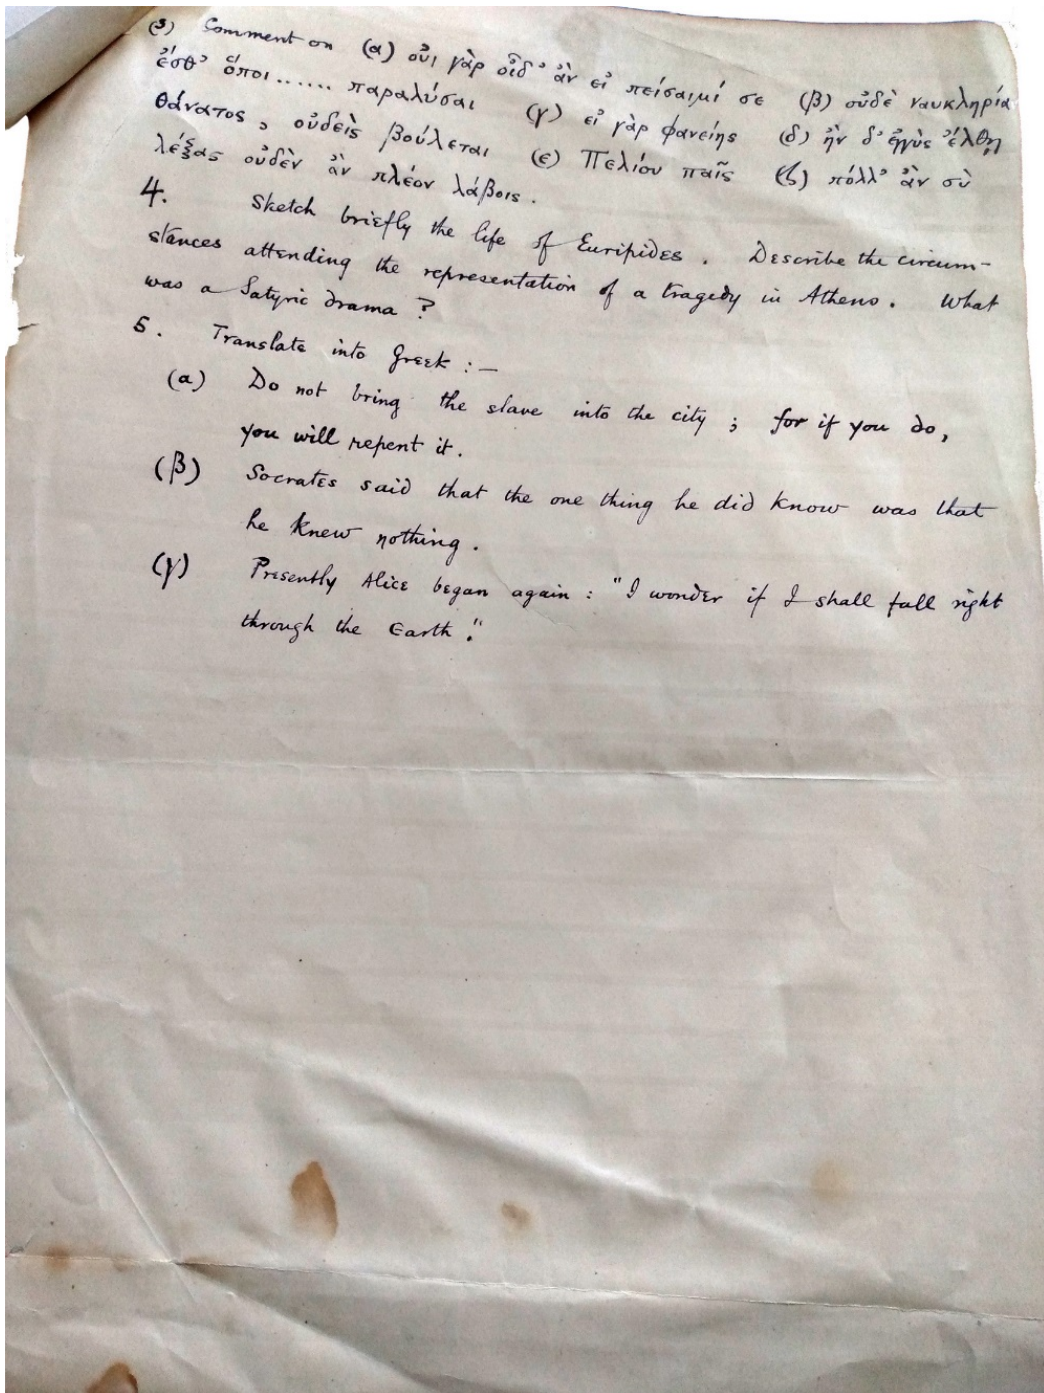 (3) Comment on (α) οὔι γὰρ οἶδ' ἂν εἰ πείσαιμί σε (β) οὐδὲ ναυκληρία
ἔσθ' ὅποι ...... παραλύσαι (γ) εἰ γὰρ φανείης (δ) ἢν δ' ἐγγὺς ἔλθῃ
θάνατος, οὐδεὶς βούλεται (ε) Πελίου παῖς (ζ) πόλλ' ἂν σὺ
λέξας οὐδὲν ἂν πλέον λάβοις.
4. Sketch briefly the life of Euripides. Describe the circum-
stances attending the representation of a tragedy in Athens. What
was a Satyric drama?
5. Translate into Greek :—
(α) Do not bring the slave into the city ; for if you do,
you will repent it.
(β) Socrates said that the one thing he did know was that
he knew nothing.
(γ) Presently Alice began again : "I wonder if I shall fall right
through the Earth!"